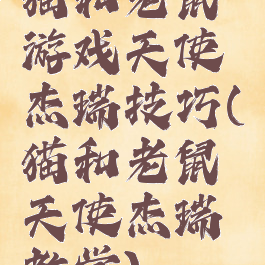 猫和老鼠
游戏天使
杰瑞技巧(
猫和老鼠
天使杰瑞
教学)